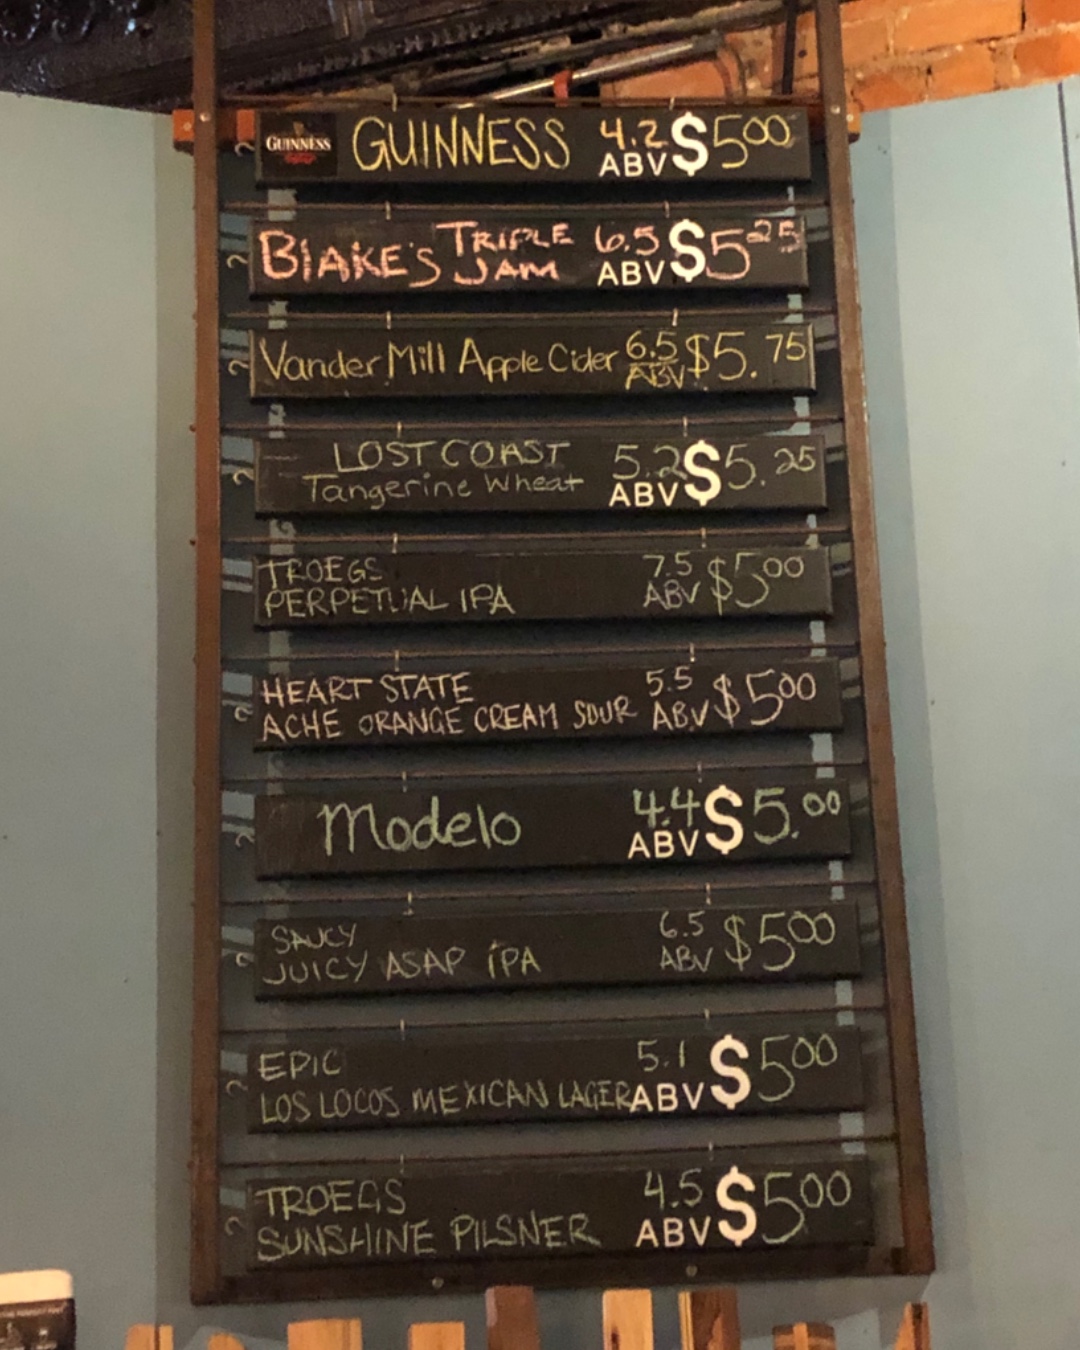 GUINNESS GUINNESS 4.2 ABV $500
BLAKE'S TRIPLE JAM 6.5 ABV $5 25
Vander Mill Apple Cider 6.5 ABV $5.75
LOST COAST 5.2 ABV $5.25
Tangerine Wheat
TROEGS 7.5 ABV $5 00
PERPETUAL IPA
HEART STATE 5.5 ABV $5 00
ACHE ORANGE CREAM SOUR
Modelo 4.4 ABV $5.00
SAUCY 6.5 ABV $5 00
JUICY ASAP IPA
EPIC 5.1 ABV $5 00
LOS LOCOS MEXICAN LAGER
TROEGS 4.5 ABV $5 00
SUNSHINE PILSNER